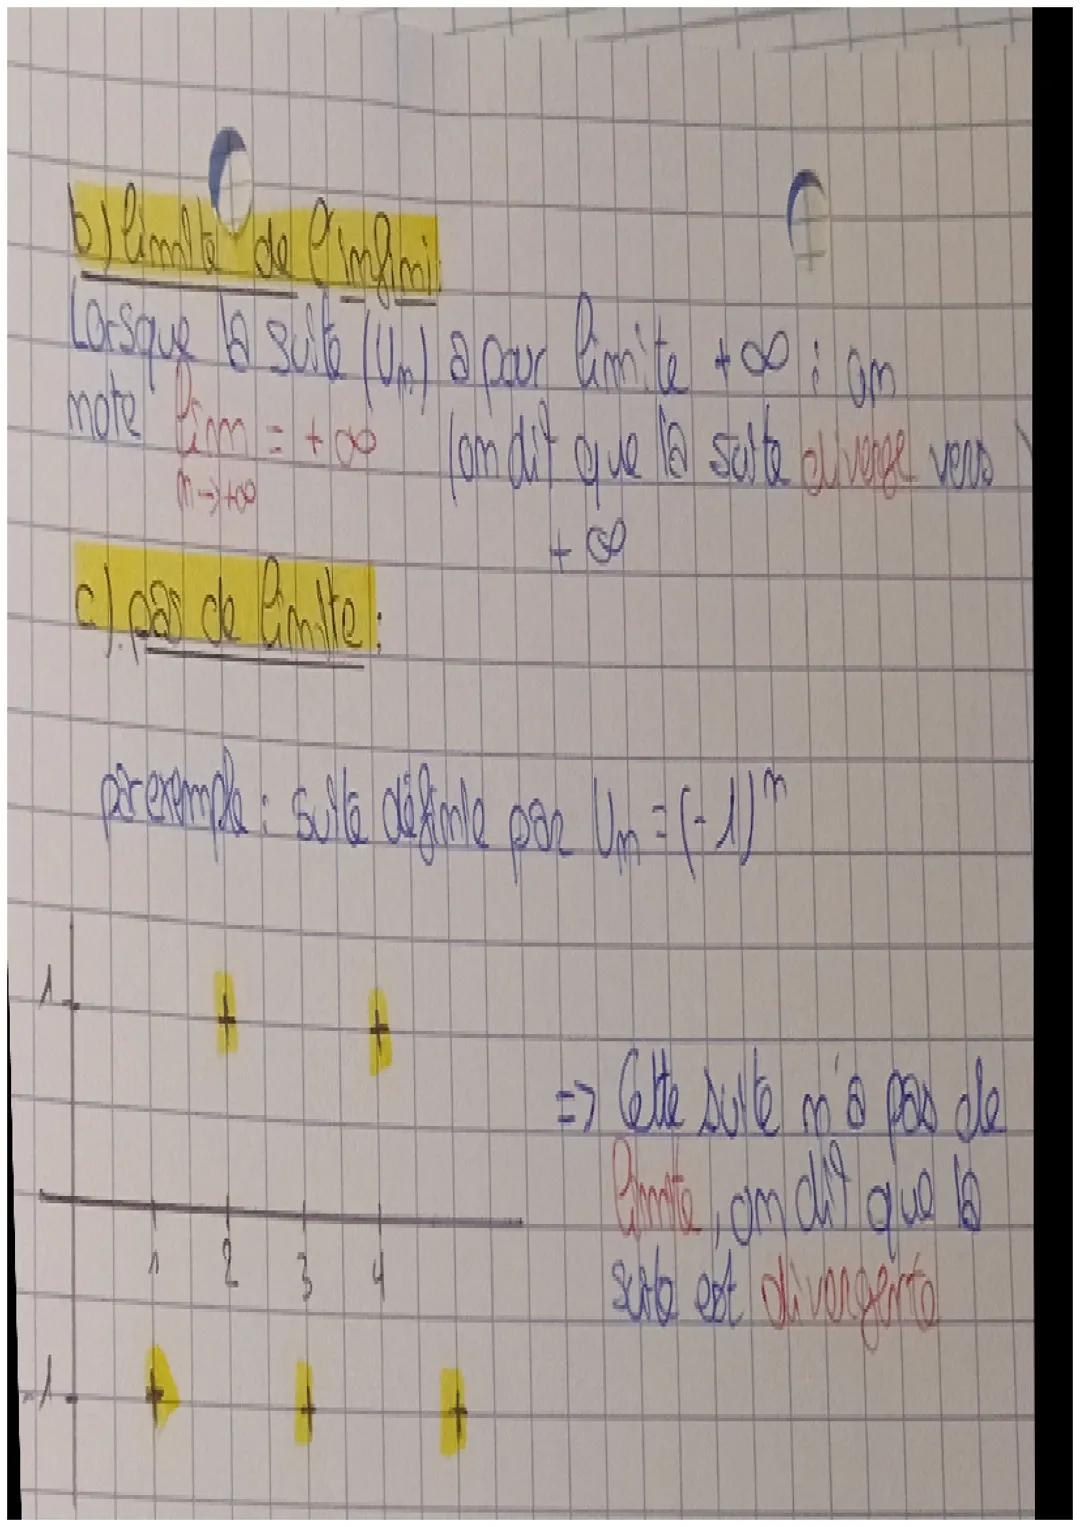 b) limite de l'infini:
Lorsque la suite (Un) a pour limite +∞ : on
note lim = +∞ (on dit que la suite diverge vers )
n→+∞
+∞
c). pas de limite :
par exemple : suite définie par Un = (-1)^n
1
=> Cette suite n'a pas de
limite, on dit que la
1 2 3 4
suite est divergente
-1